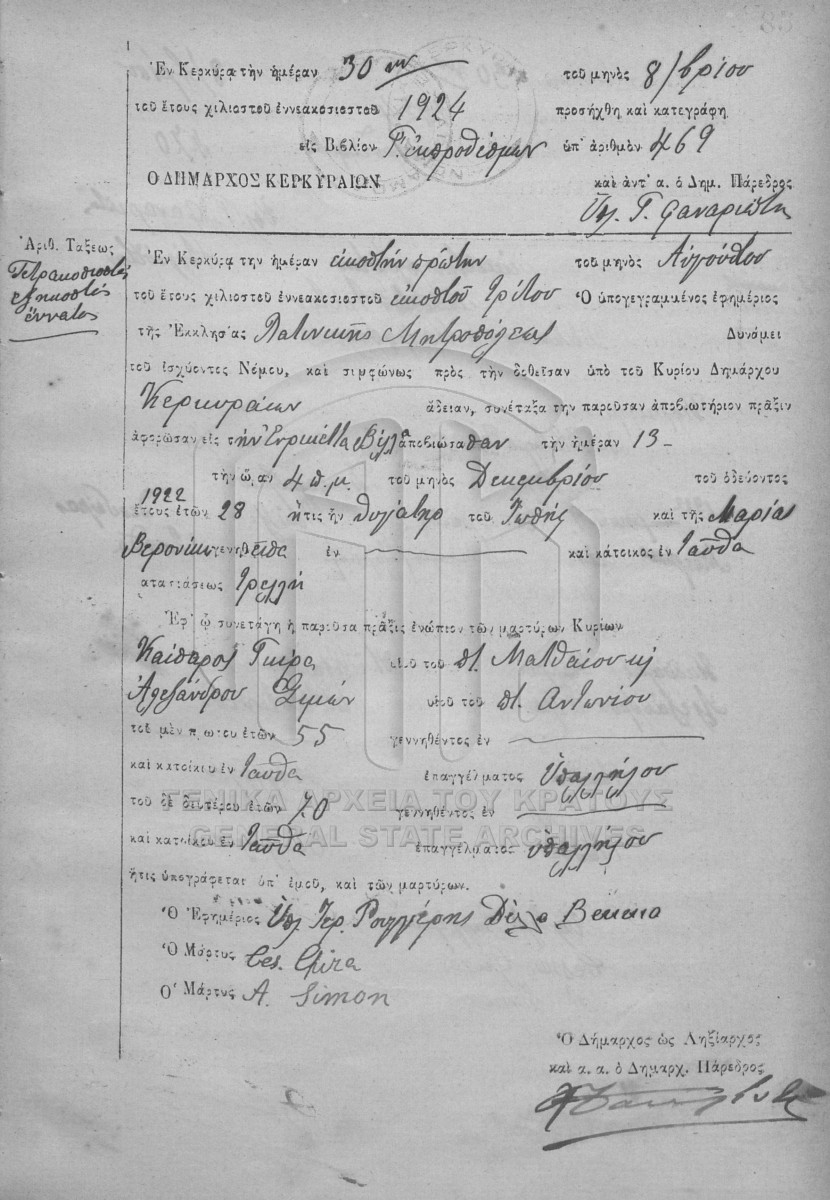 Ἐν Κερκύρᾳ τὴν ἡμέραν 30ην τοῦ μηνὸς 8/βρίου
τοῦ ἔτους χιλιοστοῦ ἐννεακοσιοστοῦ 1924 προσήχθη καὶ κατεγράφη
εἰς Βιβλίον Γ. ἐκπροθέσμων ὑπ' ἀριθμὸν 469
Ο ΔΗΜΑΡΧΟΣ ΚΕΡΚΥΡΑΙΩΝ καὶ ἀντ' α. ὁ Δημ. Πάρεδρος
Ὑπ. Γ. Φαναριώτη
Ἀριθ. Τάξεως
Τετρακοσιοστὸς
ἑξηκοστὸς
ἔννατος
Ἐν Κερκύρᾳ την ἡμέραν εἰκοστὴν πρώτην τοῦ μηνὸς Αὐγούστου
τοῦ ἔτους χιλιοστοῦ ἐννεακοσιοστοῦ εἰκοστοῦ τρίτου Ὁ ὑπογεγραμμένος ἐφημέριος
τῆς Ἐκκλησίας Λατινικῆς Μητροπόλεως Δυνάμει
τοῦ ἰσχύοντος Νόμου, καὶ συμφώνως πρὸς τὴν δοθεῖσαν ὑπὸ τοῦ Κυρίου Δημάρχου
Κερκυραίων ἄδειαν, συνέταξα την παροῦσαν ἀποβιωτήριον πρᾶξιν
ἀφορῶσαν εἰς τὴν Ἐνρικέττα Βέλλα ἀποβιώσασαν τὴν ἡμέραν 13-
τὴν ὥραν 4 π.μ. τοῦ μηνὸς Δεκεμβρίου τοῦ ὁδεύοντος
1922
ἔτους ἐτῶν 28 ἥτις ἦν θυγάτηρ τοῦ Ἰωσὴφ καὶ τῆς Μαρίας
Βερονίκη γεννηθεῖσα ἐν καὶ κάτοικος ἐν Ταῦθα
αταστάσεως
Ἐφ' ᾧ συνετάγη ἡ παροῦσα πρᾶξις ἐνώπιον τῶν μαρτύρων Κυρίων
Καίσαρος Γκίρα υἱοῦ τοῦ ποτ. Ματθαίου κ
Ἀλεξάνδρου Σιμών υἱοῦ τοῦ ποτ. Ἀντωνίου
τοῦ μὲν πρώτου ἐτῶν 55 γεννηθέντος ἐν
καὶ κατοίκου ἐν Ταῦθα ἐπαγγέλματος ὑπαλλήλου
τοῦ δὲ δευτέρου ἐτῶν 70 γεννηθέντος ἐν
καὶ κατοίκου ἐν Ταῦθα ἐπαγγέλματος ὑπαλλήλου
ἥτις ὑπογράφεται ὑπ' ἐμοῦ, καὶ τῶν μαρτύρων.
Ὁ Ἐφημέριος Ὑπ. Ἱερ. Ρουγγέρης Δέλλα
Ὁ Μάρτυς Ces. Ghira
Ὁ Μάρτυς A. Simon
Ὁ Δήμαρχος ὡς Ληξίαρχος
καὶ α. α. ὁ Δημαρχ. Πάρεδρος
ΓΕΝΙΚΑ ΑΡΧΕΙΑ ΤΟΥ ΚΡΑΤΟΥΣ
GENERAL STATE ARCHIVES